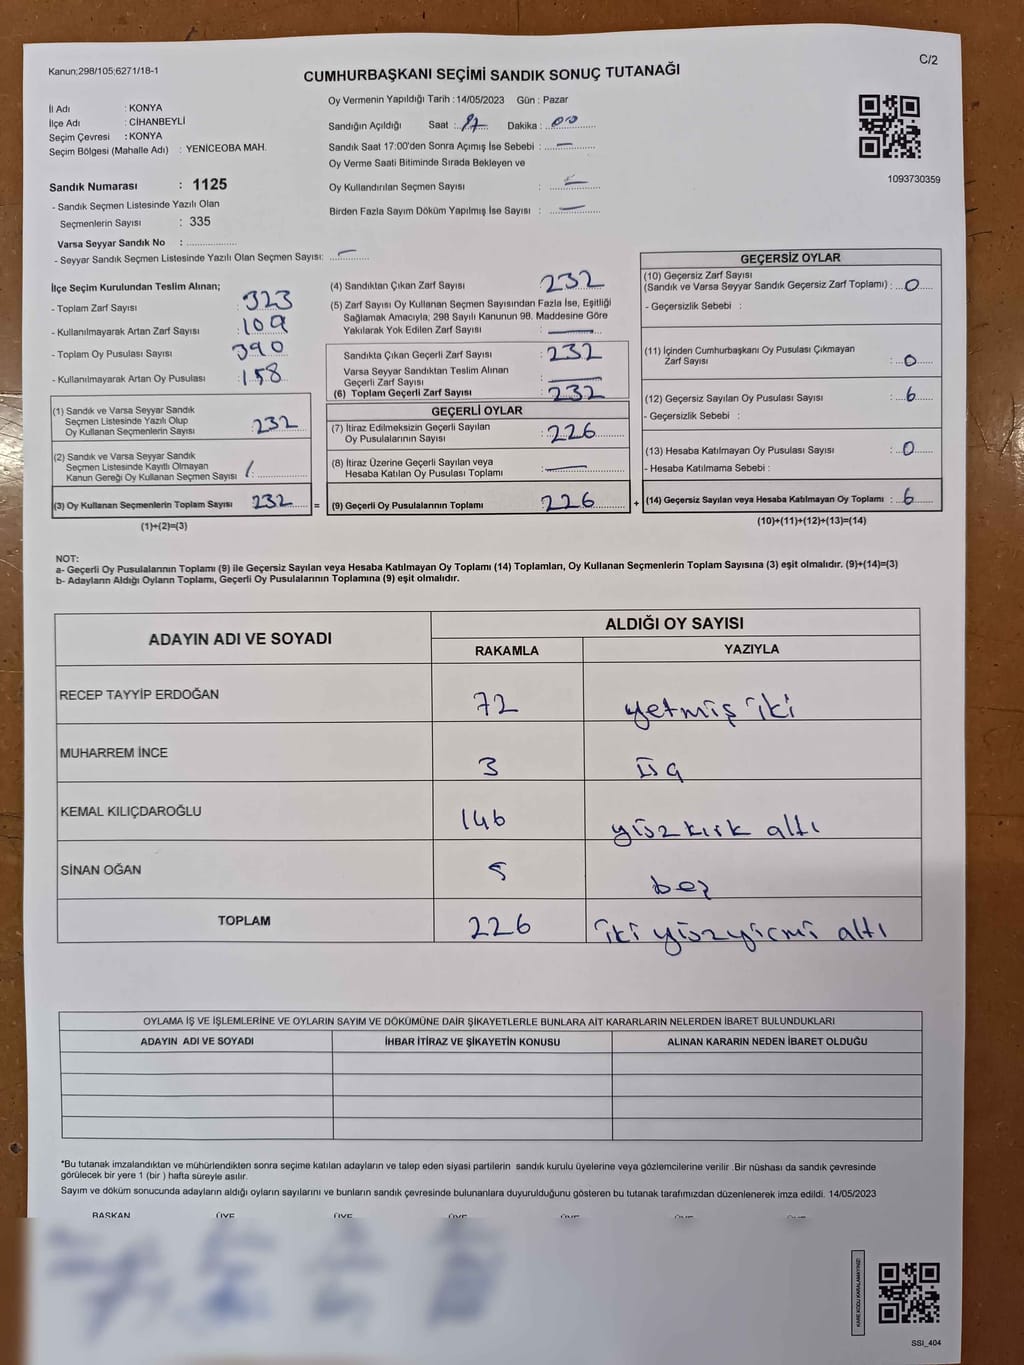 Kanun;298/105;6271/18-1
C/2
CUMHURBAŞKANI SEÇİMİ SANDIK SONUÇ TUTANAĞI
İl Adı : KONYA
İlçe Adı : CİHANBEYLİ
Seçim Çevresi : KONYA
Seçim Bölgesi (Mahalle Adı) : YENICEOBA MAH.
Sandık Numarası : 1125
- Sandık Seçmen Listesinde Yazılı Olan
Seçmenlerin Sayısı : 335
Varsa Seyyar Sandık No : ..................
- Seyyar Sandık Seçmen Listesinde Yazılı Olan Seçmen Sayısı: —
Oy Vermenin Yapıldığı Tarih : 14/05/2023 Gün : Pazar
Sandığın Açıldığı Saat : 17 Dakika : 00
Sandık Saat 17:00'den Sonra Açımış İse Sebebi : —
Oy Verme Saati Bitiminde Sırada Bekleyen ve
Oy Kullandırılan Seçmen Sayısı : —
Birden Fazla Sayım Döküm Yapılmış İse Sayısı : —
1093730359
İlçe Seçim Kurulundan Teslim Alınan;
- Toplam Zarf Sayısı : 323
- Kullanılmayarak Artan Zarf Sayısı : 109
- Toplam Oy Pusulası Sayısı : 390
- Kullanılmayarak Artan Oy Pusulası : 158
(1) Sandık ve Varsa Seyyar Sandık
Seçmen Listesinde Yazılı Olup
Oy Kullanan Seçmenlerin Sayısı : 232
(2) Sandık ve Varsa Seyyar Sandık
Seçmen Listesinde Kayıtlı Olmayan
Kanun Gereği Oy Kullanan Seçmen Sayısı : /
(3) Oy Kullanan Seçmenlerin Toplam Sayısı 232 =
(1)+(2)=(3)
(4) Sandıktan Çıkan Zarf Sayısı : 232
(5) Zarf Sayısı Oy Kullanan Seçmen Sayısından Fazla İse, Eşitliği
Sağlamak Amacıyla; 298 Sayılı Kanunun 98. Maddesine Göre
Yakılarak Yok Edilen Zarf Sayısı : —
Sandıkta Çıkan Geçerli Zarf Sayısı : 232
Varsa Seyyar Sandıktan Teslim Alınan
Geçerli Zarf Sayısı : —
(6) Toplam Geçerli Zarf Sayısı : 232
GEÇERLİ OYLAR
(7) İtiraz Edilmeksizin Geçerli Sayılan
Oy Pusulalarının Sayısı : 226
(8) İtiraz Üzerine Geçerli Sayılan veya
Hesaba Katılan Oy Pusulası Toplamı : —
(9) Geçerli Oy Pusulalarının Toplamı : 226 +
GEÇERSİZ OYLAR
(10) Geçersiz Zarf Sayısı
(Sandık ve Varsa Seyyar Sandık Geçersiz Zarf Toplamı) : 0
- Geçersizlik Sebebi :
(11) İçinden Cumhurbaşkanı Oy Pusulası Çıkmayan
Zarf Sayısı : 0
(12) Geçersiz Sayılan Oy Pusulası Sayısı : 6
- Geçersizlik Sebebi :
(13) Hesaba Katılmayan Oy Pusulası Sayısı : 0
- Hesaba Katılmama Sebebi :
(14) Geçersiz Sayılan veya Hesaba Katılmayan Oy Toplamı : 6
(10)+(11)+(12)+(13)=(14)
NOT:
a- Geçerli Oy Pusulalarının Toplamı (9) ile Geçersiz Sayılan veya Hesaba Katılmayan Oy Toplamı (14) Toplamları, Oy Kullanan Seçmenlerin Toplam Sayısına (3) eşit olmalıdır. (9)+(14)=(3)
b- Adayların Aldığı Oyların Toplamı, Geçerli Oy Pusulalarının Toplamına (9) eşit olmalıdır.
ADAYIN ADI VE SOYADI ALDIĞI OY SAYISI
RAKAMLA YAZIYLA
RECEP TAYYİP ERDOĞAN 72 yetmiş iki
MUHARREM İNCE 3 üç
KEMAL KILIÇDAROĞLU 146 yüzkırk altı
SİNAN OĞAN 5 beş
TOPLAM 226 iki yüzyirmi altı
OYLAMA İŞ VE İŞLEMLERİNE VE OYLARIN SAYIM VE DÖKÜMÜNE DAİR ŞİKAYETLERLE BUNLARA AİT KARARLARIN NELERDEN İBARET BULUNDUKLARI
ADAYIN ADI VE SOYADI İHBAR İTİRAZ VE ŞİKAYETİN KONUSU ALINAN KARARIN NEDEN İBARET OLDUĞU
*Bu tutanak imzalandıktan ve mühürlendikten sonra seçime katılan adayların ve talep eden siyasi partilerin sandık kurulu üyelerine veya gözlemcilerine verilir .Bir nüshası da sandık çevresinde
görülecek bir yere 1 (bir ) hafta süreyle asılır.
Sayım ve döküm sonucunda adayların aldığı oyların sayılarını ve bunların sandık çevresinde bulunanlara duyurulduğunu gösteren bu tutanak tarafımızdan düzenlenerek imza edildi. 14/05/2023
BAŞKAN ÜYE ÜYE ÜYE ÜYE ÜYE ÜYE
KARE KODU KARALAMAYINIZ!
SSI_404